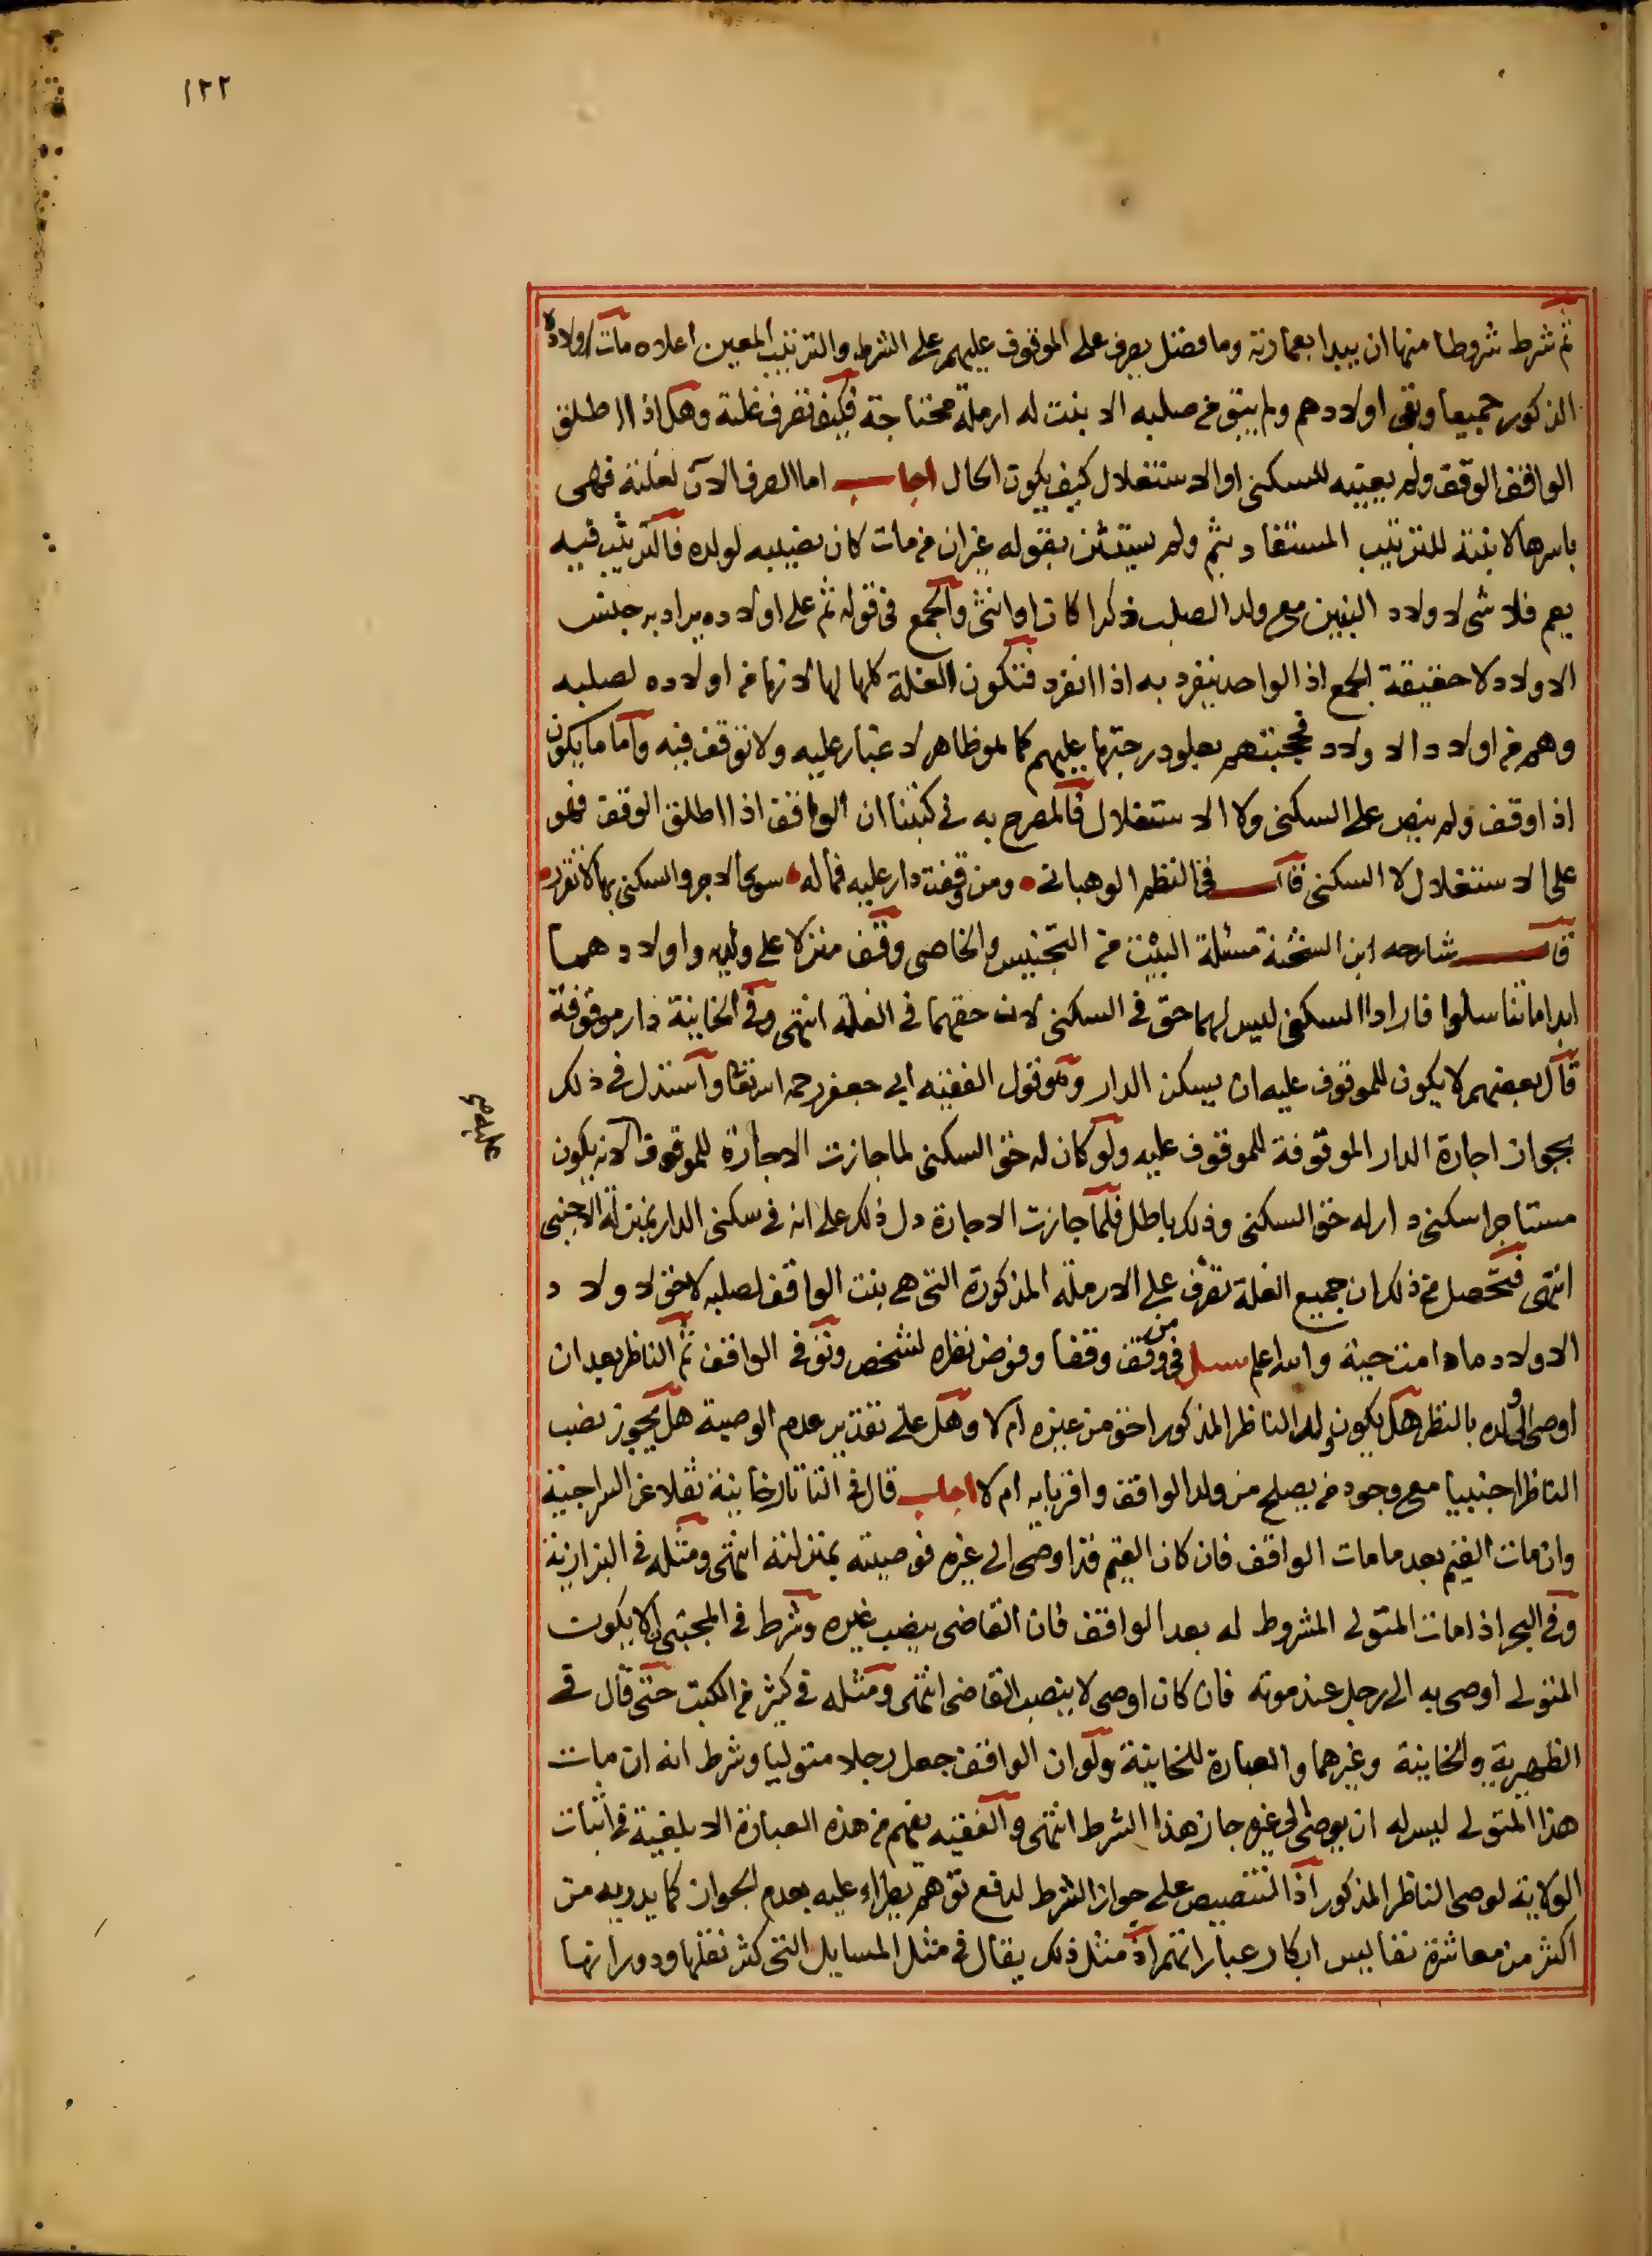 ١٢٢
ثم شرط شروطا منها ان يبدا بعمارته وما فضل يصرف على الموقوف عليهم على الشرط والترتيب المعين اعلاه مات اولاده
الذكور جميعا وبقى اولادهم ولم يبق من صلبه الا بنت له ارملة محتاجة فكيف تصرف غلته وهل اذا اطلق
الواقف الوقف ولم يعينه للسكنى او الاستغلال كيف يكون الحال اجاب اما الصرف الآن لغلته فهى
باسرها لابنته للترتيب المستفاد بثم ولم يستثن بقوله غير ان من مات كان نصيبه لولده فالترتيب فيه
يعم فلا شى لاولاد البنين مع ولد الصلب ذكرا كان او انثى والجمع فى قوله ثم على اولاده يراد به جنس
الاولاد لا حقيقة الجمع اذ الواحد ينفرد به اذا انفرد فتكون الغلة كلها لها لانها من اولاده لصلبه
وهم من اولاد الاولاد فحجبتهم بعلو درجتها عليهم كما هو ظاهر لا غبار عليه ولا توقف فيه واما ما يكون
اذا وقف ولم ينص على السكنى ولا الاستغلال فالمصرح به فى كتبنا ان الواقف اذا اطلق الوقف فهو
على الاستغلال لا السكنى قال فى النظم الوهبانى ومن وقفت دار عليه فماله سوى الاجر والسكنى بها لا تقرر
قال شارحه ابن الشحنة مسئلة البيت من التجنيس والخاصى وقف منزلا على ولديه واولادهما
ابدا ما تناسلوا فارادا السكنى ليس لهما حق فى السكنى لان حقهما فى الغلة انتهى وفى الخانية دار موقوفة
قال بعضهم لا يكون للموقوف عليه ان يسكن الدار وهو قول الفقيه ابى جعفر رحمه الله تعالى واستدل فى ذلك
بجواز اجارة الدار الموقوفة للموقوف عليه ولو كان له حق السكنى لما جازت الاجارة للموقوف لانه يكون
مستاجرا سكنى دار له حق السكنى وذلك باطل فلما جازت الاجارة دل ذلك على انه فى سكنى الدار بمنزلة الاجنبى
انتهى فتحصل من ذلك ان جميع الغلة تصرف على الارملة المذكورة التى هى بنت الواقف لصلبه لا حق لاولاد
الاولاد ما دامت حية والله اعلم سئل فى من وقف وقفا وفوض نظره لشخص وتوفى الواقف ثم الناظر بعد ان
اوصى الى ولده بالنظر هل يكون ولد الناظر المذكور احق من غيره ام لا وهل على تقدير عدم الوصية هل يجوز نصب
الناظر اجنبيا مع وجود من يصلح من ولد الواقف واقربايه ام لا اجاب قال فى التاتارخانية نقلا عن السراجية
وان مات القيم بعد ما مات الواقف فان كان القيم قد اوصى الى غيره فوصيته بمنزلته انتهى ومثله فى البزازية
وفى البحر اذا مات المتولى المشروط له بعد الواقف فان القاضى ينصب غيره وشرط فى المجتبى ان لا يكون
المتولى اوصى به الى رجل عند موته فان كان اوصى لا ينصب القاضى انتهى ومثله فى كثير من الكتب حتى قال فى
الظهيرية والخانية وغيرهما والعبارة للخانية ولو ان الواقف جعل رجلا متوليا وشرط انه ان مات
هذا المتولى ليس له ان يوصى الى غيره جاز هذا الشرط انتهى والفقيه يفهم من هذه العبارة الابلغية فى اثبات
الولاية لوصى الناظر المذكور اذ التنصيص على جواز الشرط لدفع توهم يطراء عليه بعدم الجواز كما يدريه من
اكثر من معاشرة نفايس ابكار عباراتهم اذ مثل ذلك يقال فى مثل المسايل التى كثر نقلها ودورانها